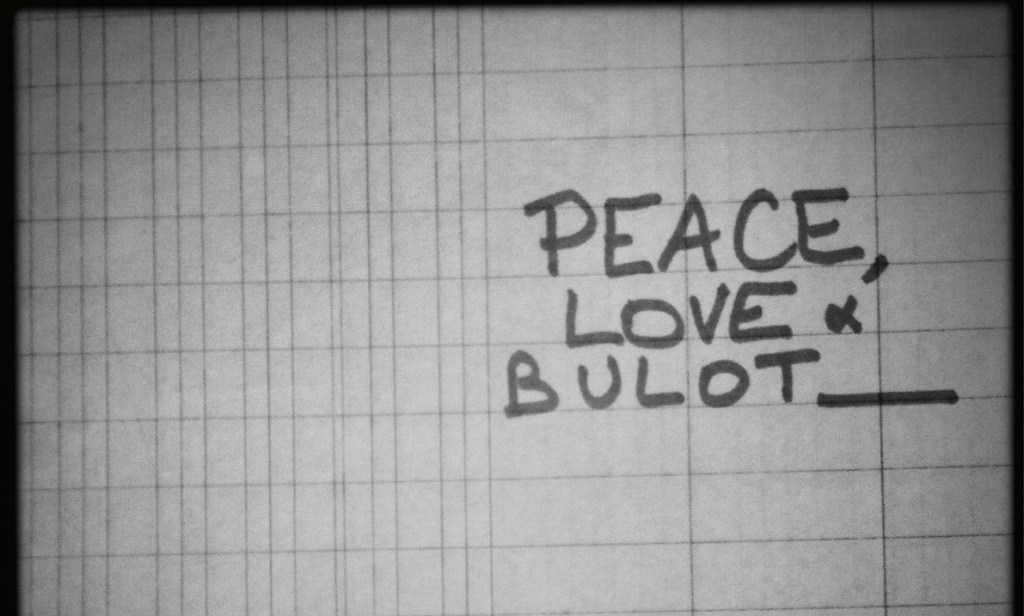 PEACE,
LOVE &
BULOT__